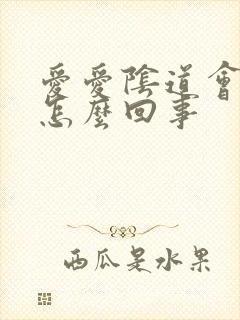 愛愛陰道會
怎麼回事
西瓜是水果